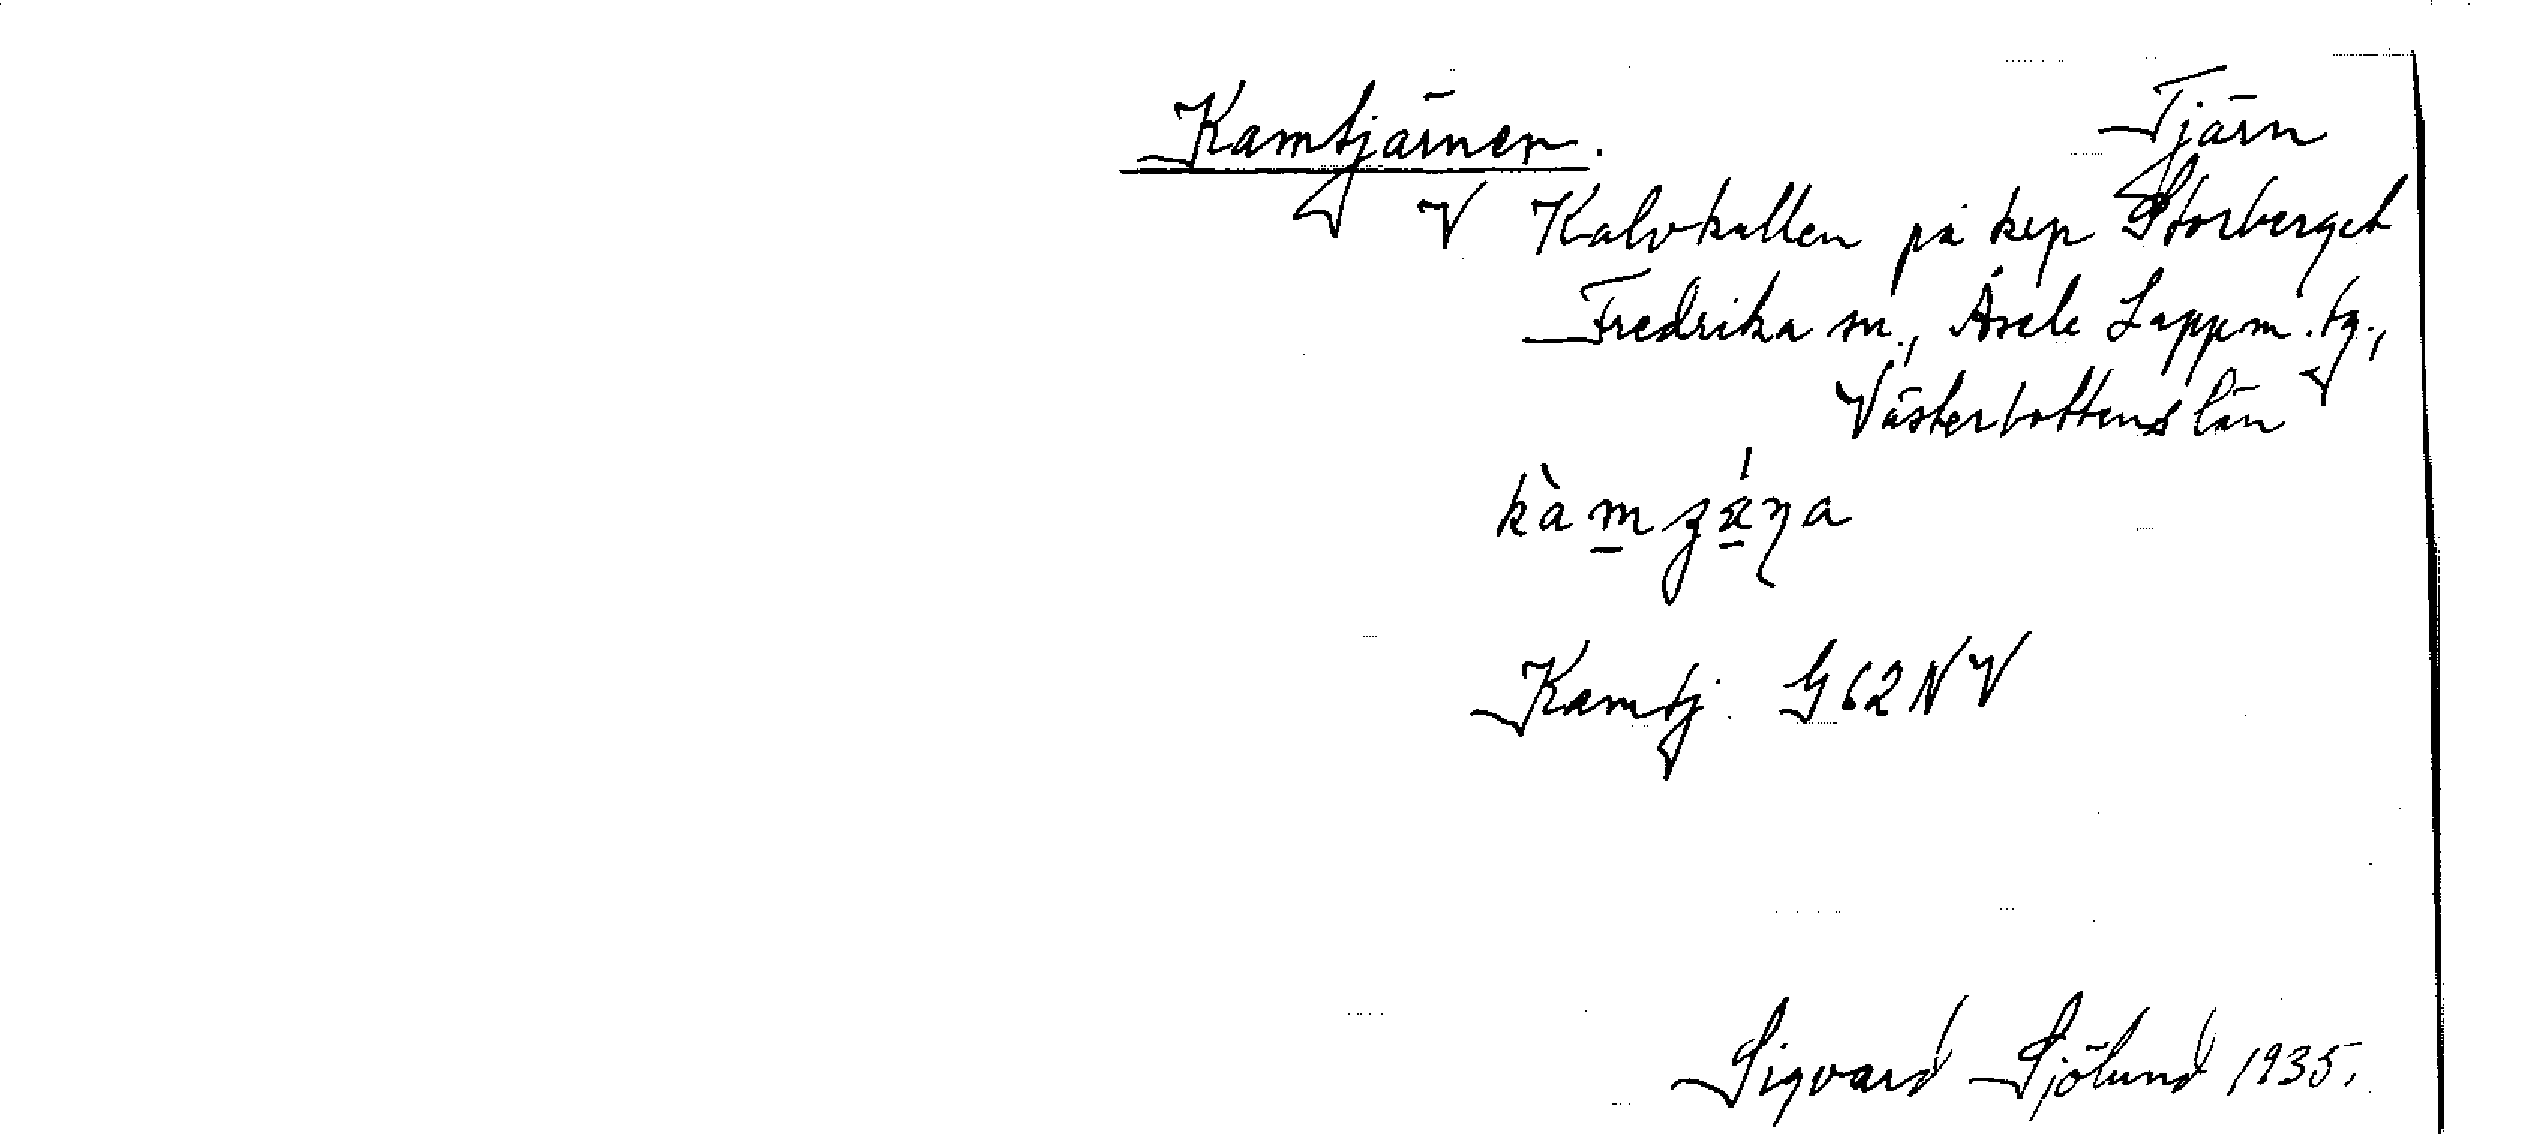 Kamtjärnen. Tjärn
V Kalvkullen på kxp Storberget
Fredrika sn., Åsele Lappm. tg.,
Västerbottens län
Kamtj. G62NV
Sigvard Sjölund 1935.